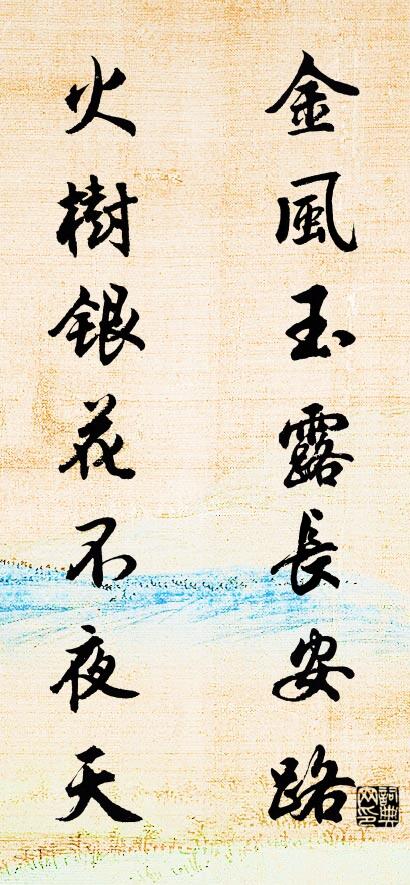 金風玉露長安路
火樹銀花不夜天
詞典